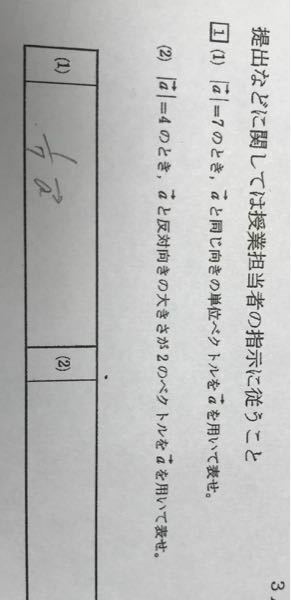 提出などに関しては授業担当者の指示に従うこと
1 (1) |a⃗|=7のとき，a⃗と同じ向きの単位ベクトルをa⃗を用いて表せ。
(2) |a⃗|=4のとき，a⃗と反対向きの大きさが2のベクトルをa⃗を用いて表せ。
(1) 1/7 a⃗ (2)
3